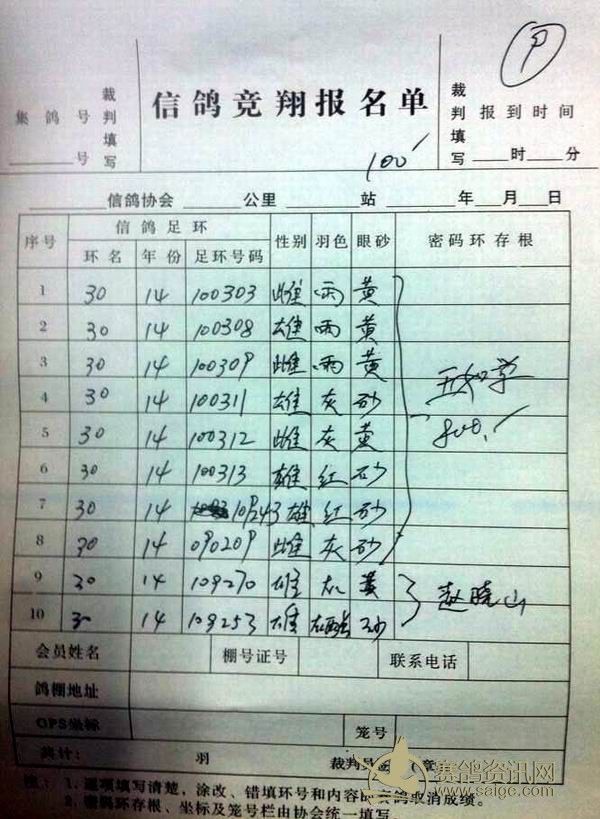 P
集鸽号 裁判填写
号
信鸽竞翔报名单
裁判填写 报到时间
时 分
100
信鸽协会 公里 站 年 月 日
序号 信鸽足环 性别 羽色 眼砂 密码环存根
环名 年份 足环号码
1 30 14 100303 雌 雨 黄
2 30 14 100308 雄 雨 黄
3 30 14 100309 雌 雨 黄
4 30 14 100311 雄 灰 砂
5 30 14 100312 雌 灰 黄
6 30 14 100313 雄 红 砂
7 30 14 109243 雄 红 砂
8 30 14 090209 雌 灰 砂
9 30 14 109270 雄 黄
10 30 14 109253 雄 砂
800
赵晓山
会员姓名 棚号证号 联系电话
鸽棚地址
GPS坐标 笼号
共计: 羽 裁判员签 章
注: 1. 逐项填写清楚，涂改、错填环号和内容的赛鸽取消成绩。
2. 密码环存根、坐标及笼号栏由协会统一填写
赛鸽资讯网
www.saige.com